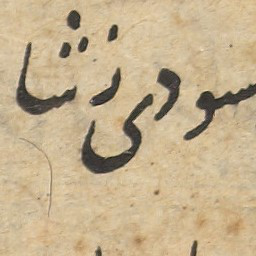 سودی زشا